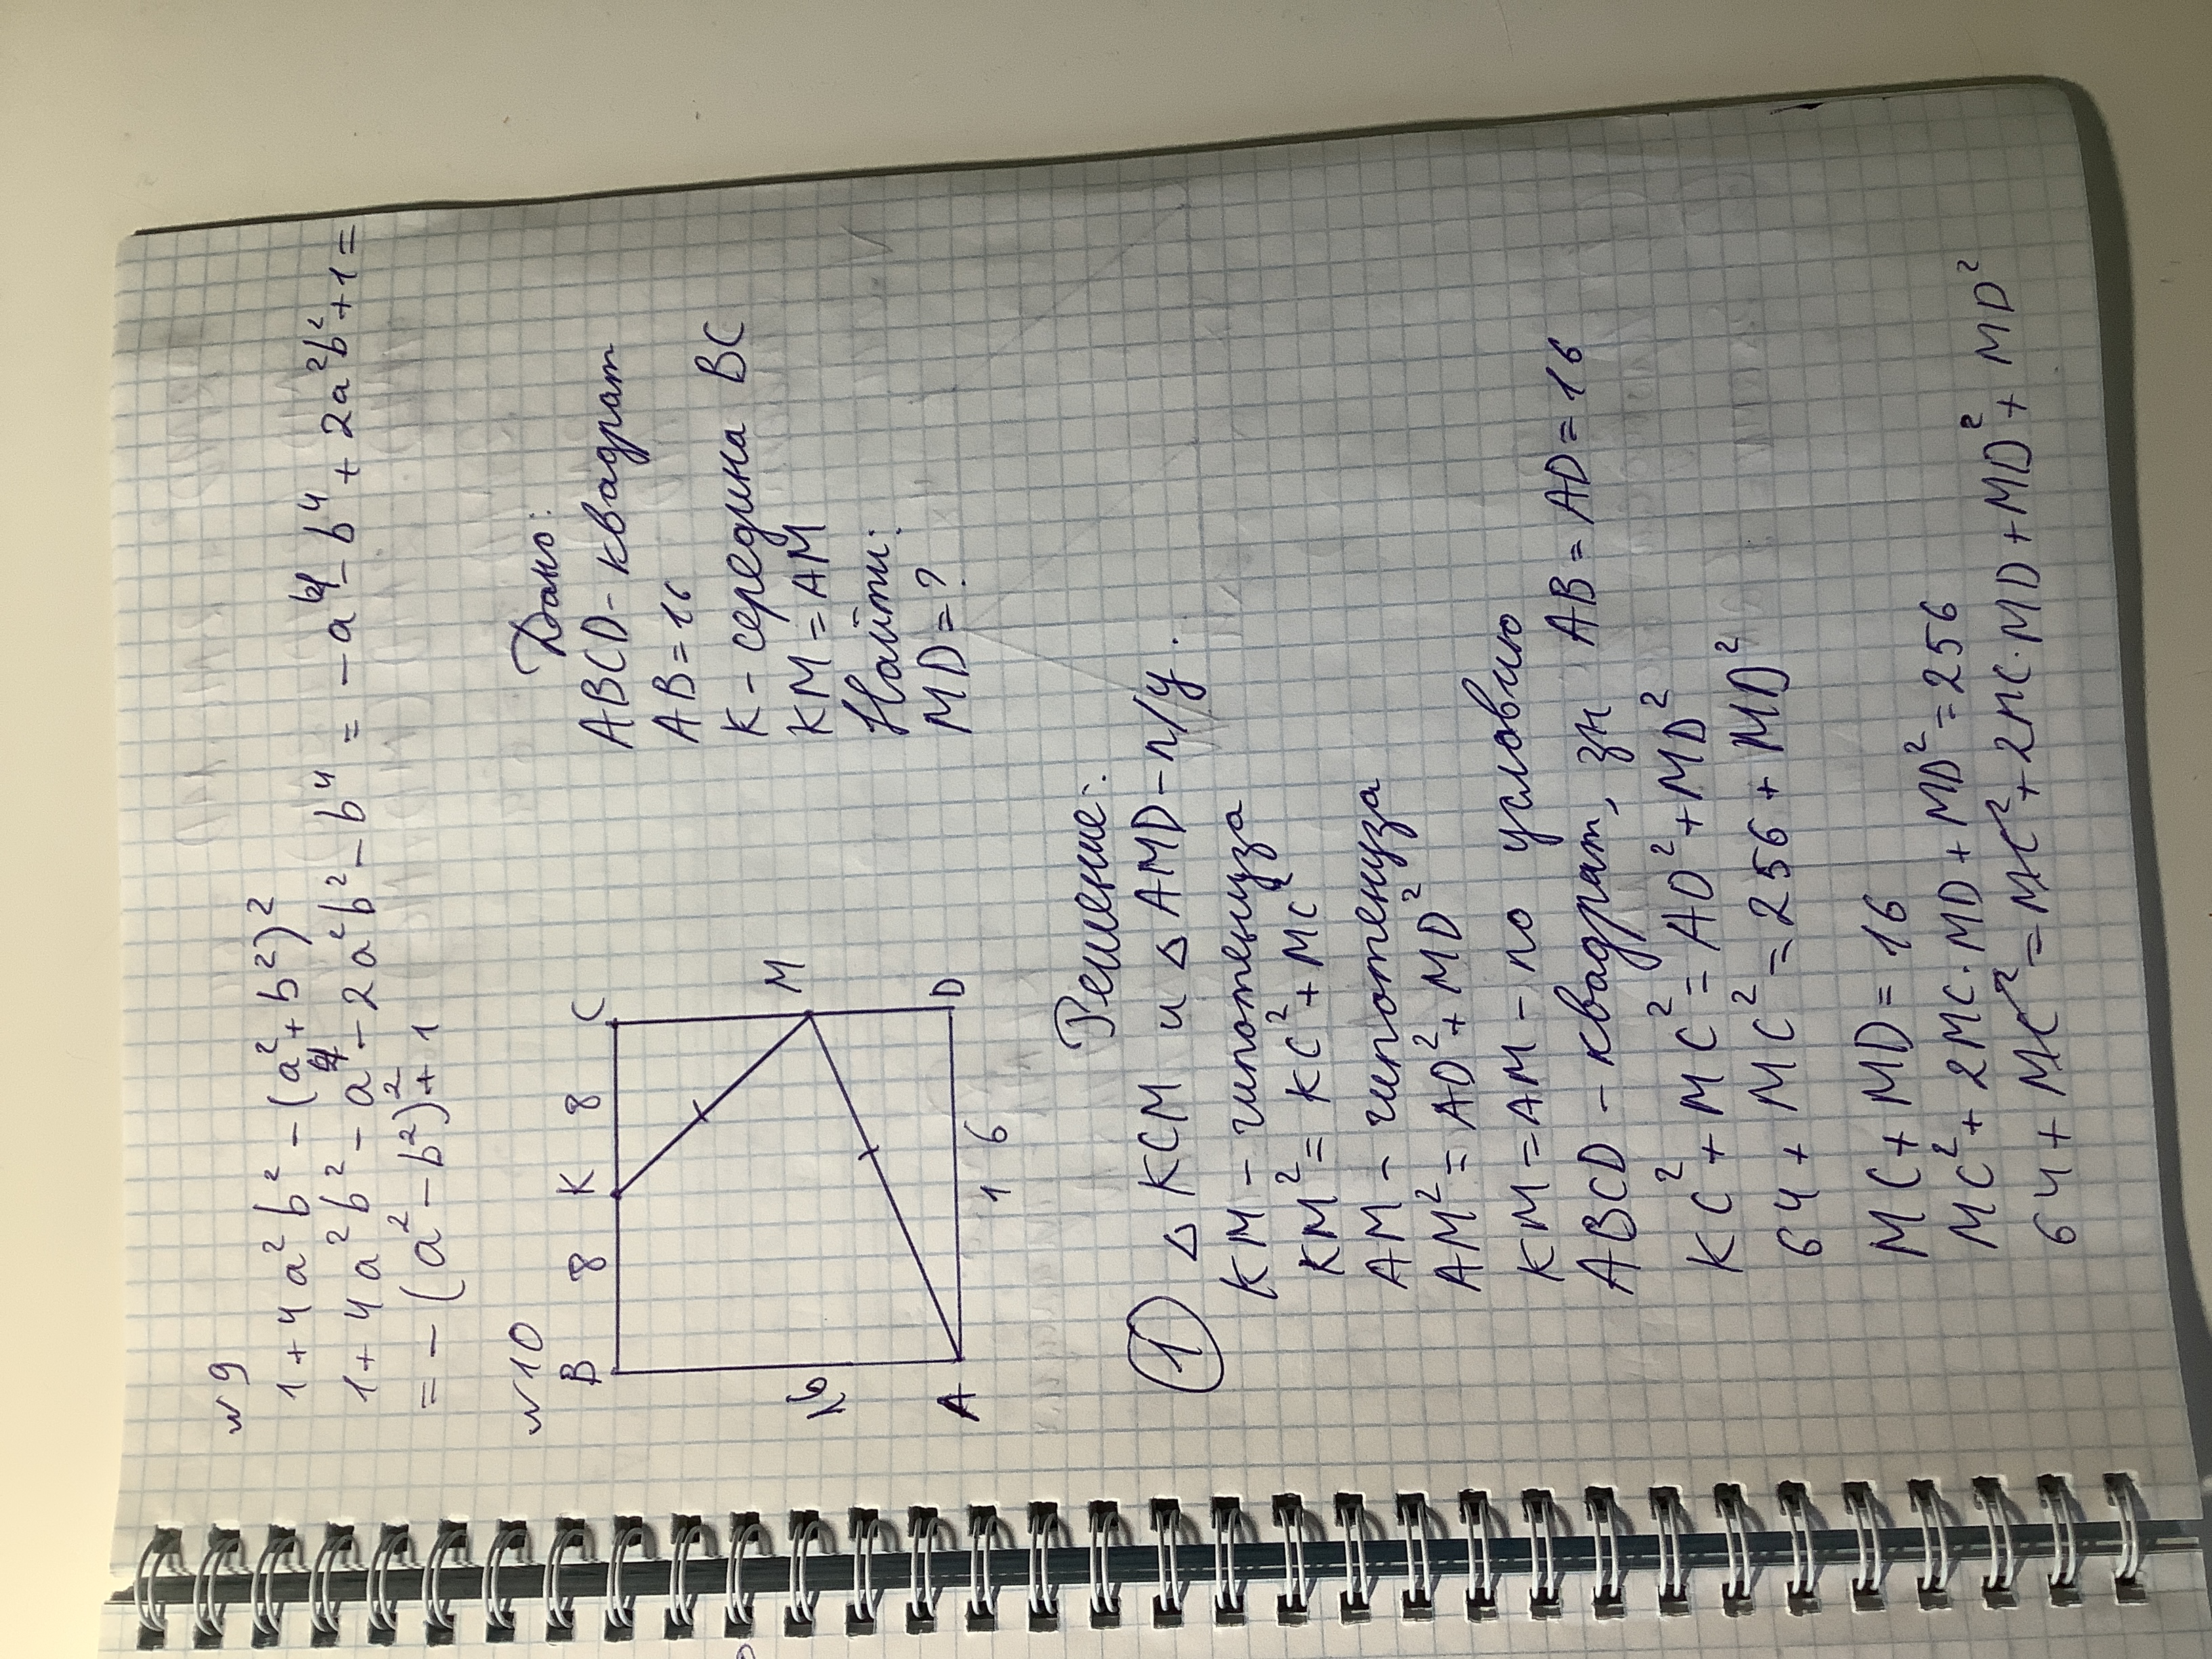 №9
1+4a²b²-(a²+b²)²
1+4a²b²-a⁴-2a²b²-b⁴=-a⁴-b⁴+2a²b²+1=
=-(a²-b²)²+1
№10
B 8 K 8 C
16
M
A
D
16
Дано:
ABCD-квадрат
AB=16
K-середина BC
KM=AM
Найти:
MD=?
Решение:
① △KCM и △AMD-п/у.
KM-гипотенуза
KM²=KC²+MC²
AM-гипотенуза
AM²=AD²+MD²
KM=AM-по условию
ABCD-квадрат, зн AB=AD=16
KC²+MC²=AD²+MD²
64+MC²=256+MD²
MC+MD=16
MC²+2MC·MD+MD²=256
64+MC²=MC²+2MC·MD+MD²+MD²